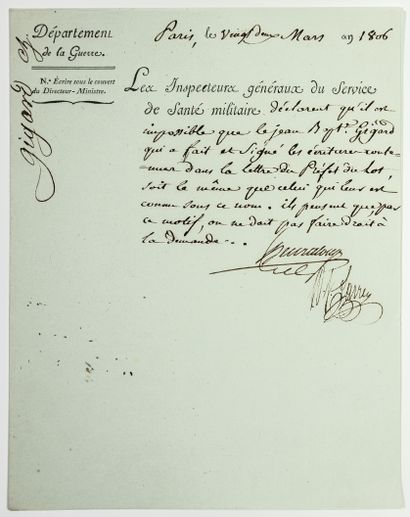 Département
de la Guerre.
N.ª Ecrire sous le couvert
du Directeur-Ministre.
Gigard
Paris, le Vingt deux Mars an 1806
Les Inspecteurs généraux du Service
de Santé militaire déclarent qu'il est
impossible que le jean Bapt.e Gigard
qui a fait et Signé les écritures conte-
nues dans la lettre du Préfet du Lot,
soit le même que celui qui leur est
connu sous ce nom. ils pensent que par
ce motif, on ne doit pas faire droit à
la demande...
Heurteloup
Larrey